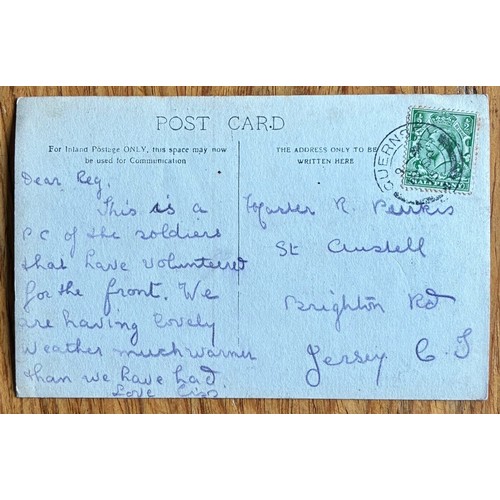 POST CARD
For Inland Postage ONLY, this space may now
be used for Communication
THE ADDRESS ONLY TO BE
WRITTEN HERE
GUERNSEY
Dear Reg.
This is a
P C of the soldiers
that have volunteered
for the front. We
are having lovely
weather much warmer
than we have had.
Love
Master R.
St Austell
Brighton Rd
Jersey C. I